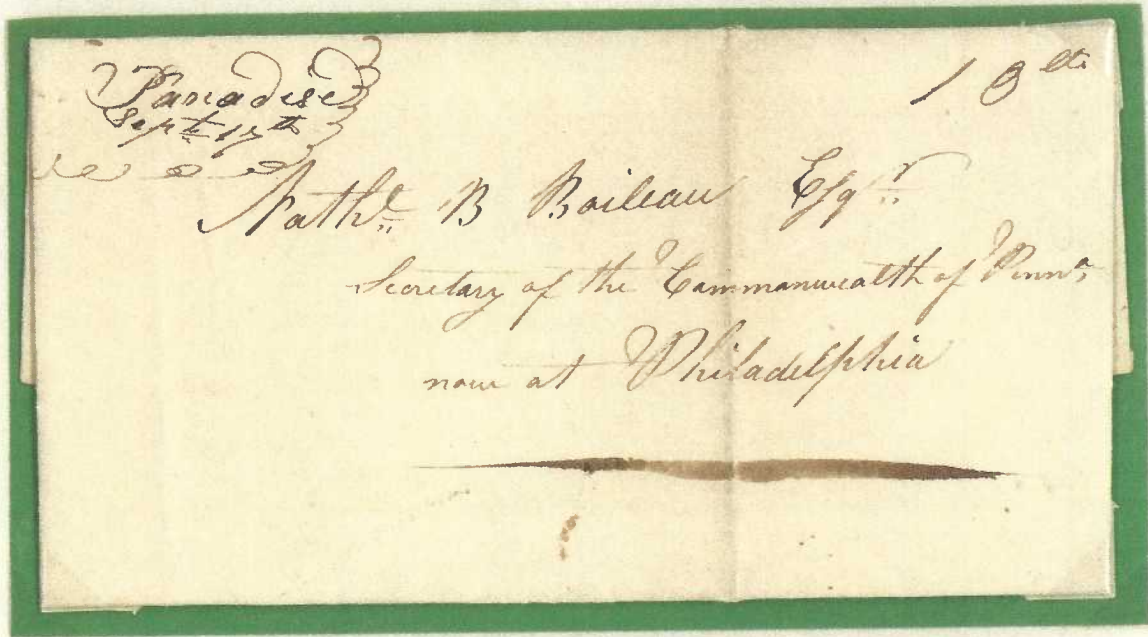 Paradise
Sept 17th
18 cts
Nathl B Boileau Esqr
Secretary of the Commonwealth of Penna
now at Philadelphia